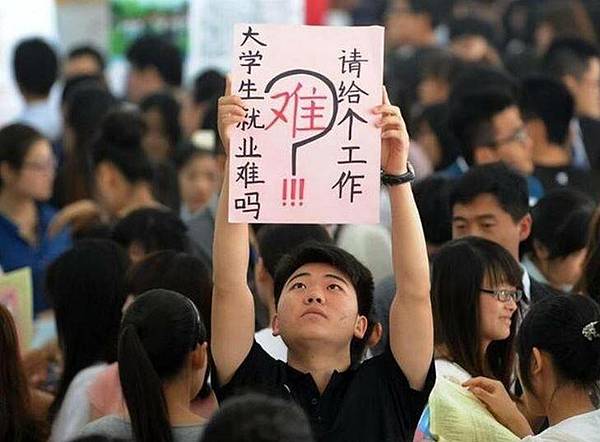 大学生就业难吗
难
!!!
请给个工作